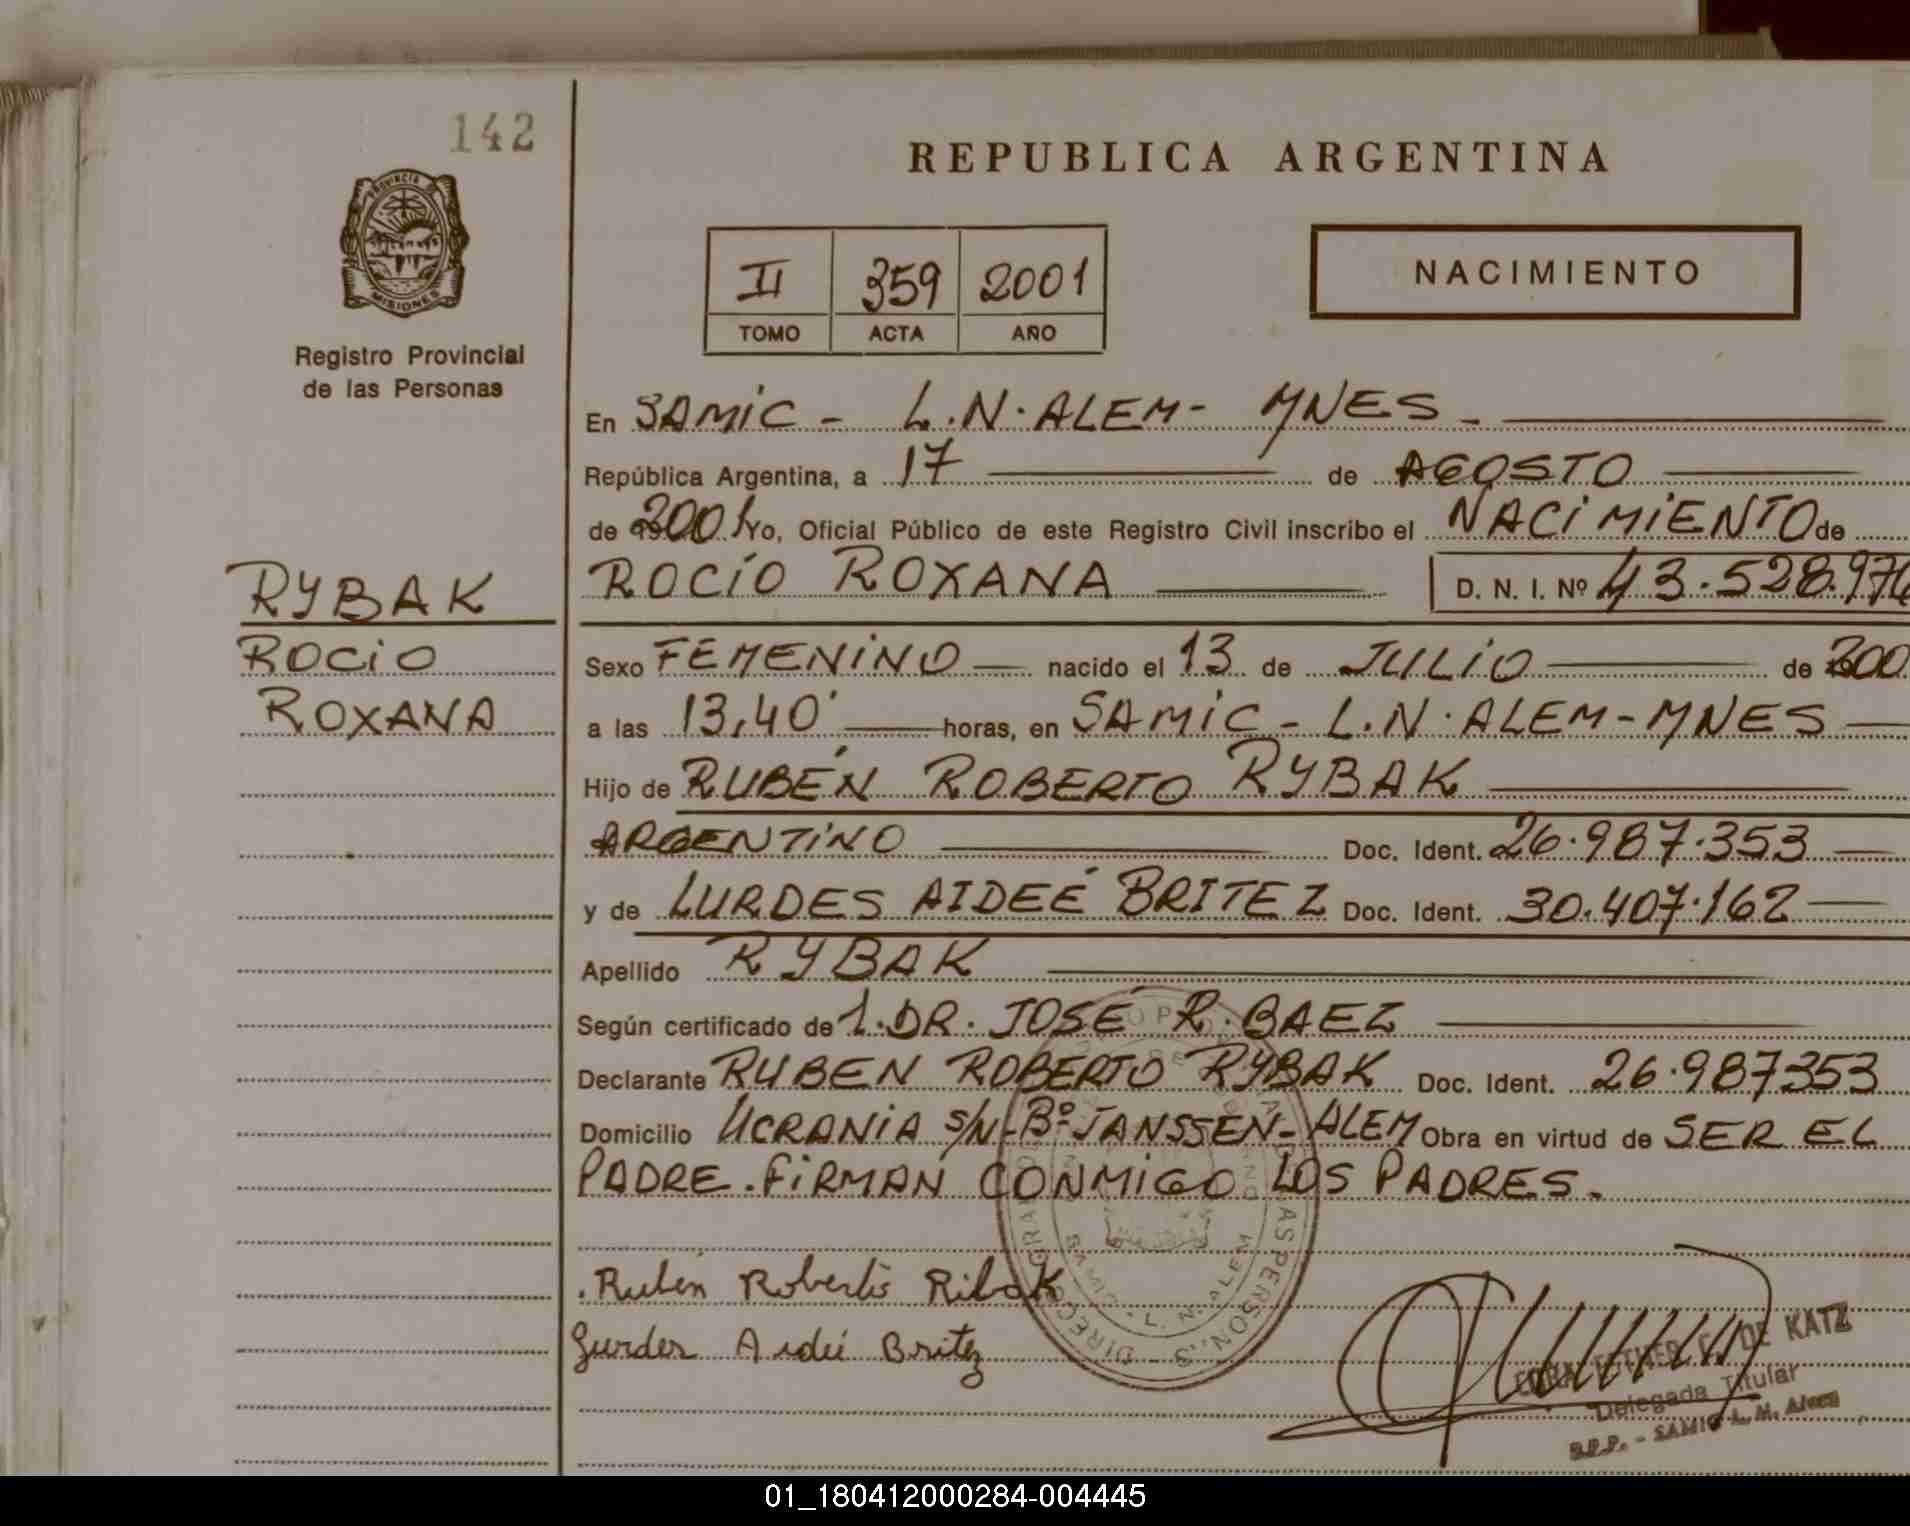 142
REPUBLICA ARGENTINA
PROVINCIA DE
MISIONES
Registro Provincial
de las Personas
II 359 2001
TOMO ACTA AÑO
NACIMIENTO
En SAMIC - L.N. ALEM - MNES -
República Argentina, a 17 de AGOSTO
de 2001 Yo, Oficial Público de este Registro Civil inscribo el NACIMIENTO de
ROCÍO ROXANA D. N. I. Nº 43.528.976
RYBAK
ROCIO
ROXANA
Sexo FEMENINO nacido el 13 de JULIO de 200
a las 13,40' horas, en SAMIC - L.N. ALEM - MNES
Hijo de RUBÉN ROBERTO RYBAK
ARGENTINO Doc. Ident. 26.987.353
y de LURDES AIDEÉ BRITEZ Doc. Ident. 30.407.162
Apellido RYBAK
Según certificado de 1. DR. JOSÉ R. BAEZ
Declarante RUBEN ROBERTO RYBAK Doc. Ident. 26.987353
Domicilio UCRANIA S/N - Bº JANSSEN - ALEM Obra en virtud de SER EL
PADRE. FIRMAN CONMIGO LOS PADRES.
Rubén Roberto Ribak
Lurdes Aideé Britez
SAMIC - L. N. ALEM
DE KATZ
Delegada Titular
R.P.P. - SAMIC L. N. Alem
01_180412000284-004445